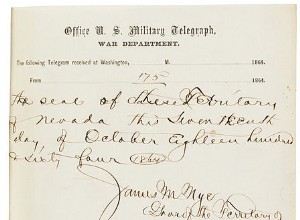 Office U. S. Military Telegraph,
WAR DEPARTMENT.
The following Telegram received at Washington, M. 1864.
From 175 1864.
the seal of these Territory
of Nevada this Seventeenth
day, of October Eighteen hundred
& Sixty four 1864
James W. Nye
Gov of the Territory of